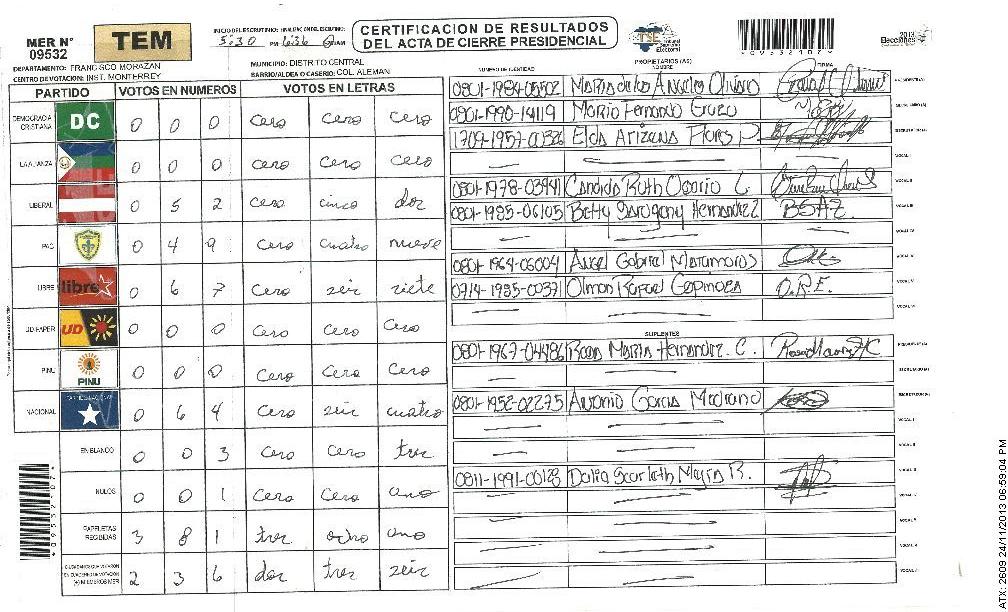 MER N° 09532
TEM
INICIO DEL ESCRUTINIO: 5:30 PM FINALIZACION DEL ESCRUTINIO: 6:36
CERTIFICACION DE RESULTADOS
DEL ACTA DE CIERRE PRESIDENCIAL
TSE
Tribunal Supremo Electoral
*09532107*
2013
Elecciones
DEPARTAMENTO: FRANCISCO MORAZAN
MUNICIPIO: DISTRITO CENTRAL
CENTRO DE VOTACION: INST. MONTERREY
BARRIO/ALDEA O CASERIO: COL. ALEMAN
PARTIDO VOTOS EN NUMEROS VOTOS EN LETRAS
DEMOCRACIA CRISTIANA DC 0 0 0 cero cero cero
LA ALIANZA 0 0 0 cero cero cero
LIBERAL 0 5 2 cero cinco dos
PAC 0 4 9 cero cuatro nueve
LIBRE libre 0 6 7 cero seis siete
UD FAPER UD 0 0 0 cero cero cero
PINU PINU 0 0 0 cero cero cero
NACIONAL 0 6 4 cero seis cuatro
EN BLANCO 0 0 3 cero cero tres
NULOS 0 0 1 cero cero uno
PAPELETAS RECIBIDAS 3 8 1 tres ocho uno
CIUDADANOS QUE VOTARON EN CUADERNO DE VOTACION (+) MIEMBROS MER 2 3 6 dos tres seis
NUMERO DE IDENTIDAD PROPIETARIOS (AS) NOMBRE FIRMA
0801-1984-05502 Maria de los Angeles
0801-1990-14119 Mario Fernando
1709-1957-00326 Elda Arizena Flores P
VOCAL I
0801-1978-03941 Candida Ruth Osorio C. VOCAL II
0801-1985-06105 Betty Hernandez BSAZ VOCAL III
VOCAL IV
0801-1964-06004 Angel Gabriel Matamoros VOCAL V
0714-1985-00371 Olman Rafael Espinoza O.R.E.
SUPLENTES
0801-1967-04486 Rosa Maria Hernandez C.
0801-1952-02275 Antonio Garcia Medrano
VOCAL I
VOCAL II
0811-1991-00128 Dalia Scarleth Mejia R. VOCAL III
*09532107*
ATX: 2609 24/11/2013 06:59:04 PM